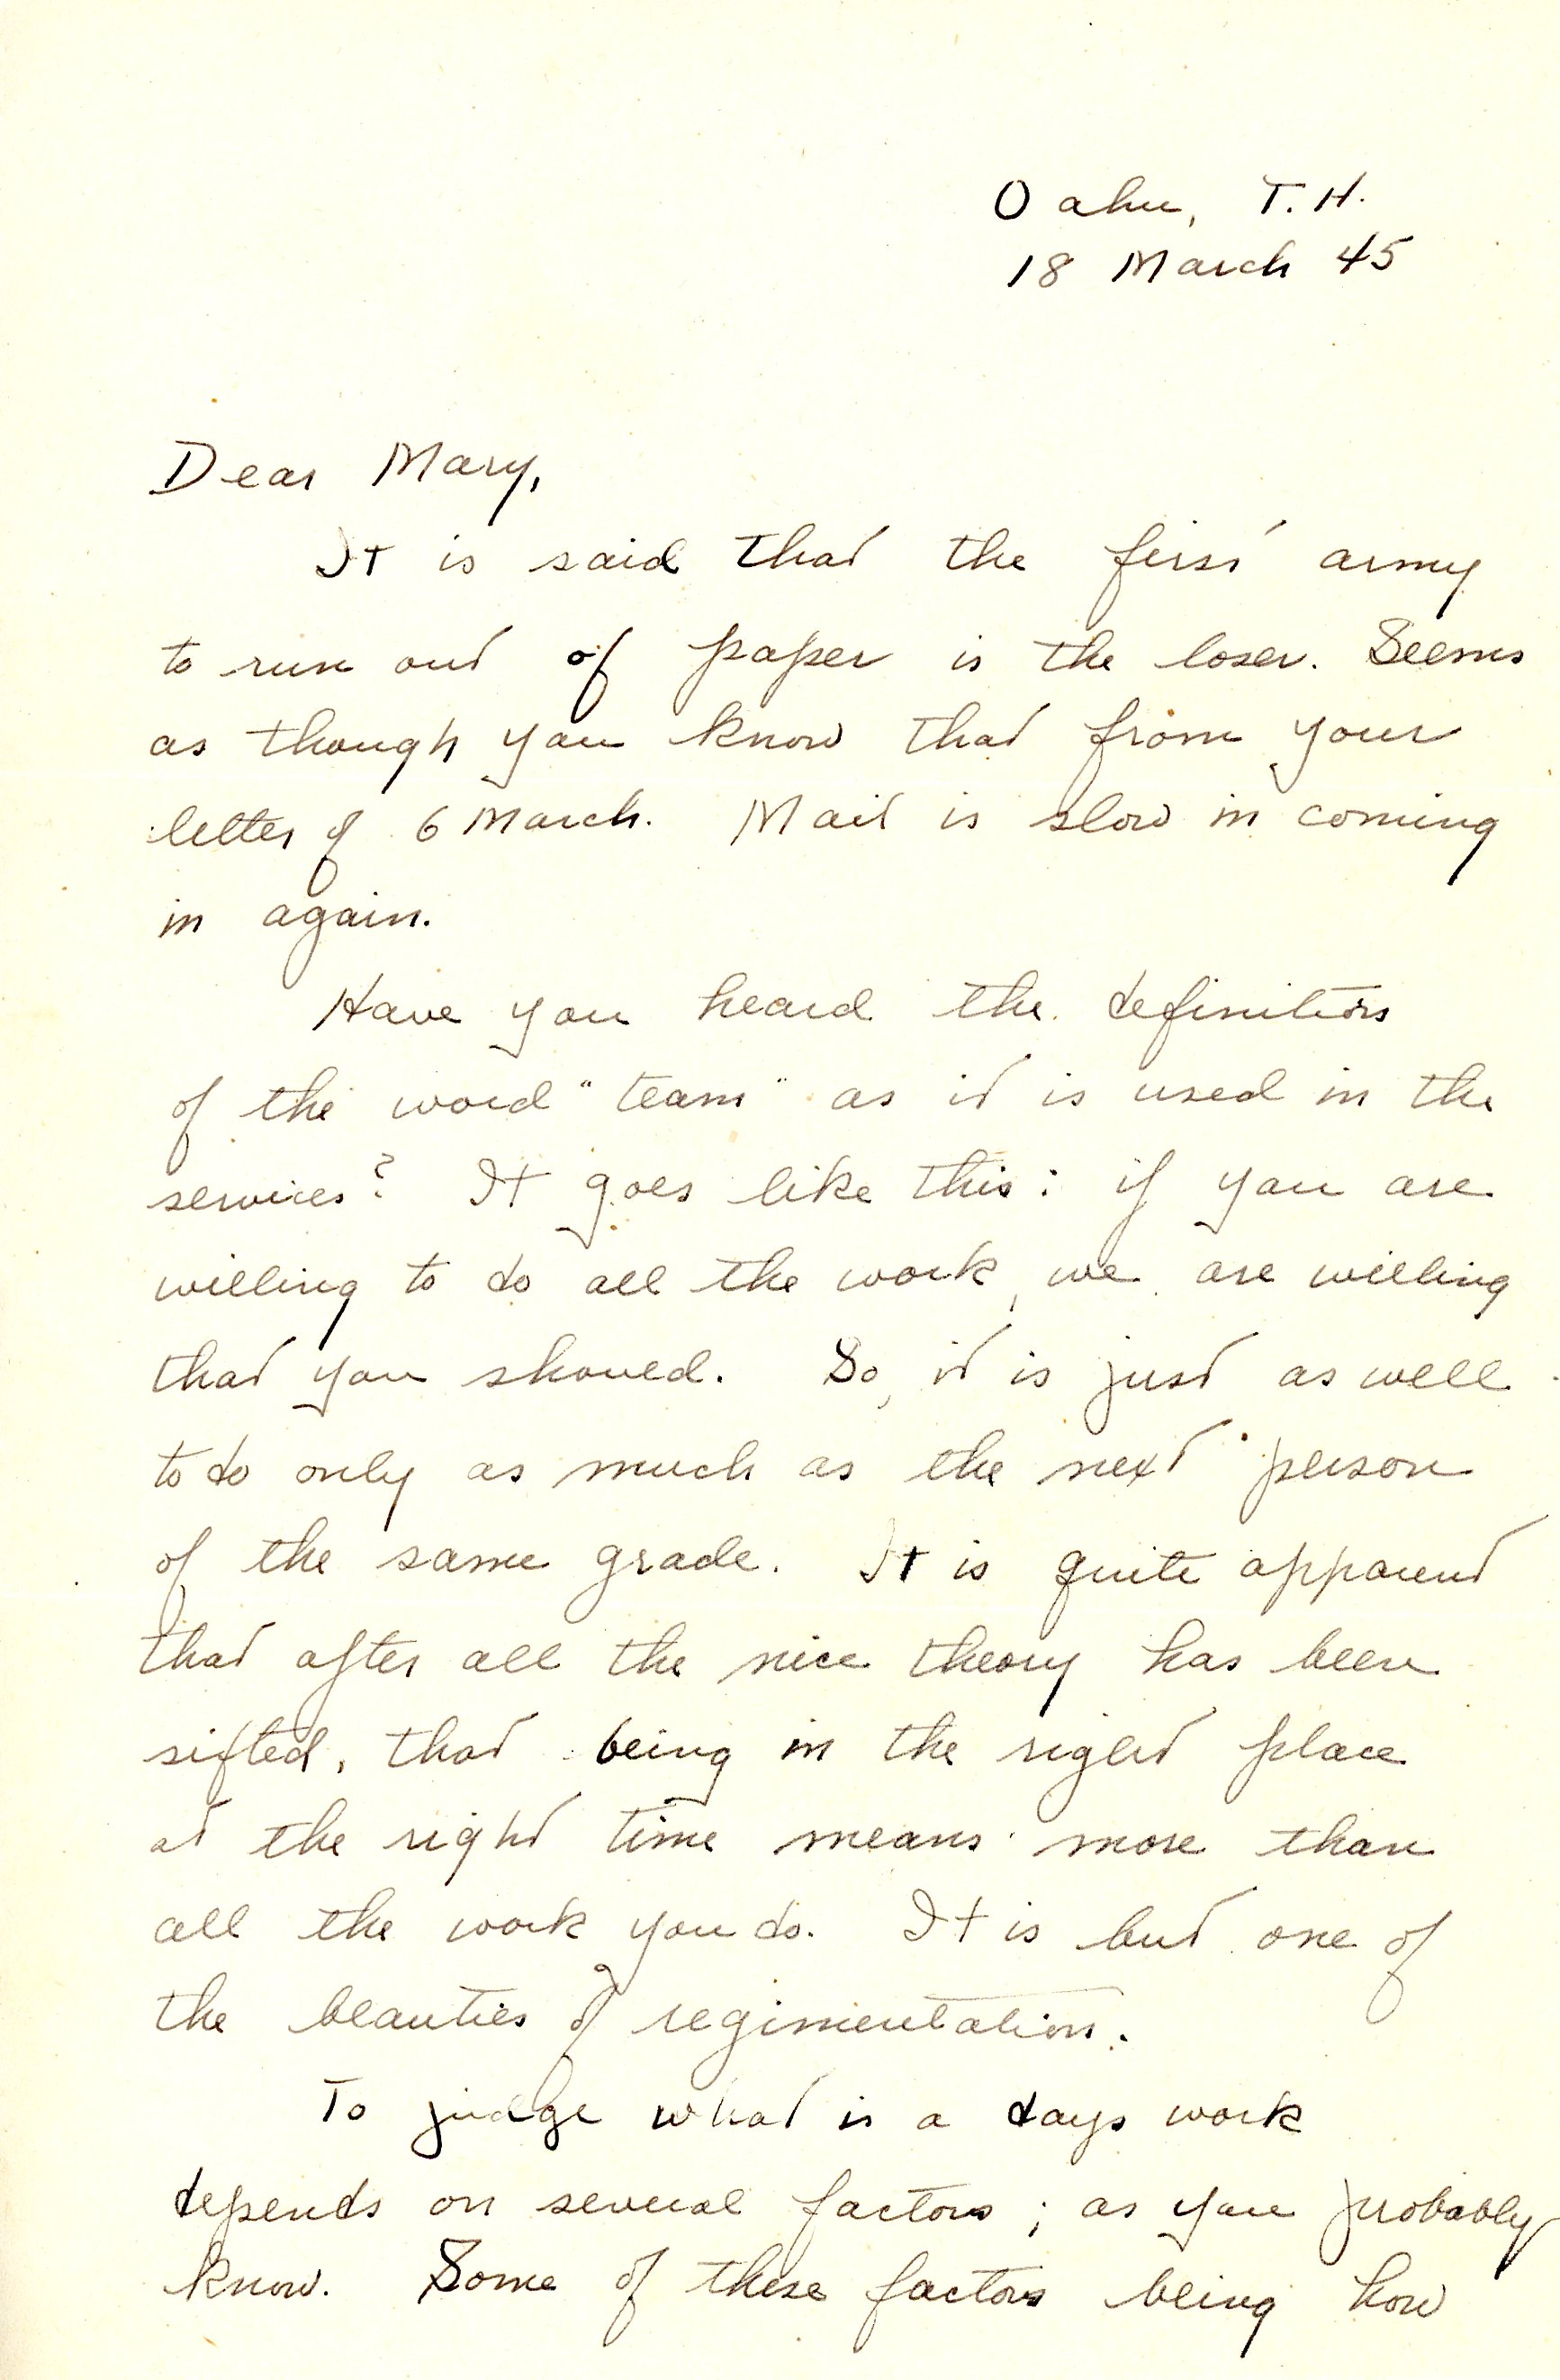 Oahu, T.H.
18 March 45
Dear Mary,
It is said that the first army
to run out of paper is the loser. Seems
as though you know that from your
letter of 6 March. Mail is slow in coming
in again.
Have you heard the definition
of the word "team" as it is used in the
services? It goes like this: if you are
willing to do all the work, we are willing
that you shoued. So, it is just as well
to do only as much as the next person
of the same grade. It is quite apparent
that after all the nice theory has been
sifted, that being in the right place
at the right time means more than
all the work you do. It is but one of
the beauties of regimentation.
To judge what is a days work
depends on several factors; as you probably
know. Some of these factors being how